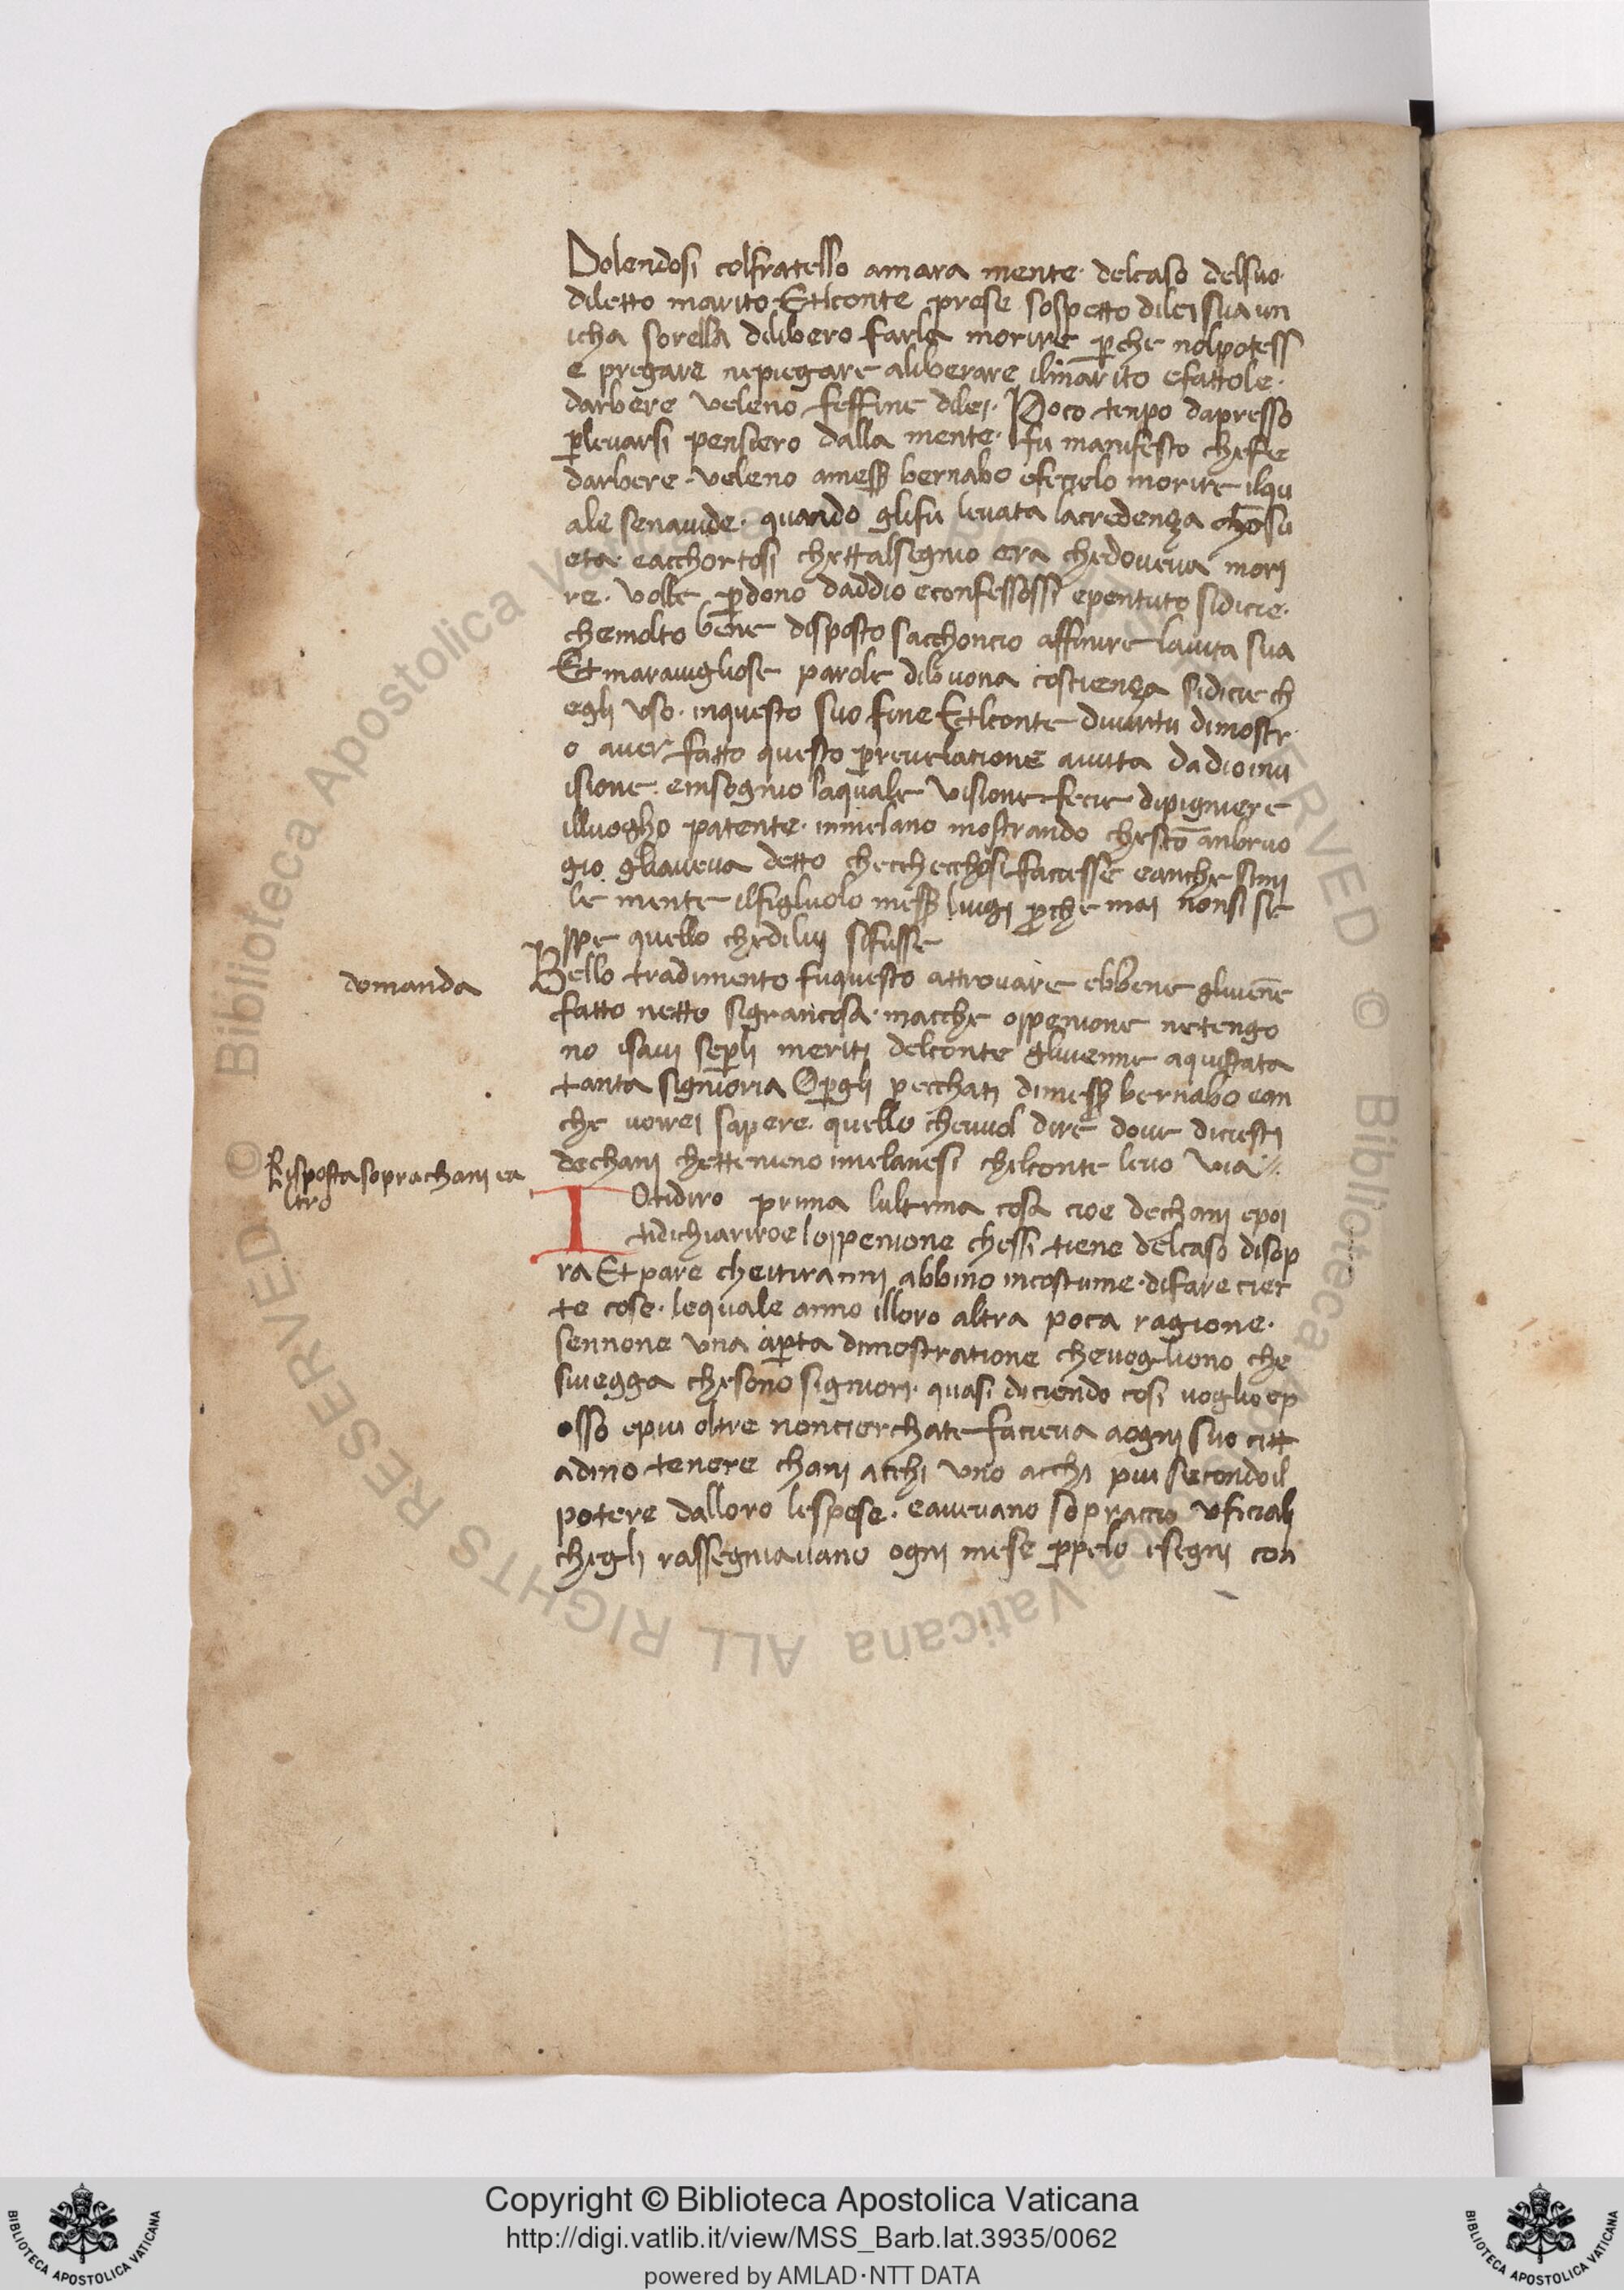 Dolendosi colfratello amara mente· delcaso delsuo
diletto marito· Etlconte prese sospetto dilei sua un
icha sorella dilibero farla morire p̄che nolpotess
e pregare nepiegare aliberare ilmarito efattole·
darbere veleno feffine dilei· Poco tenpo dapresso
p̄levarsi pensiero dalla mente· fu manifesto cheffe
darbere· veleno amess̄ bernabo efecielo morire ilqu
ale senavide· quando glifu levata lacredença chōsu
eta· eacchortosi chettalsegnio era chedoveva mori
re· volle p̄dono daddio econfessossi epentuto sidicie·
chemolto bene disposto sacchoncio affinire lavita sua
Et maravigliose parole dibuona cosciença sidicie ch
egli uso· inquesto suo fine Etlconte divirtu dimostr
o aver fatto questo p̄revelatione auuta dadio inu
isione· einsognio laquale visione fecie dipigniere
illuogho patente· inmelano mostrando chescō anbruo
gio gliaveva detto checchecchosi faciesse eanche simi
le mente ilfigluolo mess̄ luigi p̄che mai nonsi se
ppe quello chedilui sifusse
domanda
Bello tradimento fuquesto attrovare ebbene glivenē
fatto netto sigrancosa· macche oppenione netengo
no isavi sep̄li meriti delconte glivenne aquistata
tanta signioria Op̄gli pecchati dimess̄ bernabo ean
che vorrei sapere· quello chevuol dire dove diciesti
dechani chettenieno imelanesi chelconte levo via
Risposta sopra chani ea
ltro
IOtidiro prima lultima cosa cioe dechani epoi
tidichiariroe loppenione chessi tiene delcaso disop
ra Et pare cheitiranni abbino incostume· difare cier
te cose· lequale anno illoro altra poca ragione·
sennone una ap̄ta dimostratione chevogliono che
sivegga chesono signiori· quasi diciendo cosi voglio ep
osso epiu oltre noncierchate facieva aogni suo citt
adino tenere chani acchi uno acchi piu secondoil
potere dalloro lespese· eavevano sopraccio uficiali
chegli rassegniavano ogni mese p̄pelo esegni con
Copyright © Biblioteca Apostolica Vaticana
http://digi.vatlib.it/view/MSS_Barb.lat.3935/0062
powered by AMLAD·NTT DATA
BIBLIOTECA APOSTOLICA VATICANA
BIBLIOTECA APOSTOLICA VATICANA
© Biblioteca Apostolica Vaticana ALL RIGHTS RESERVED